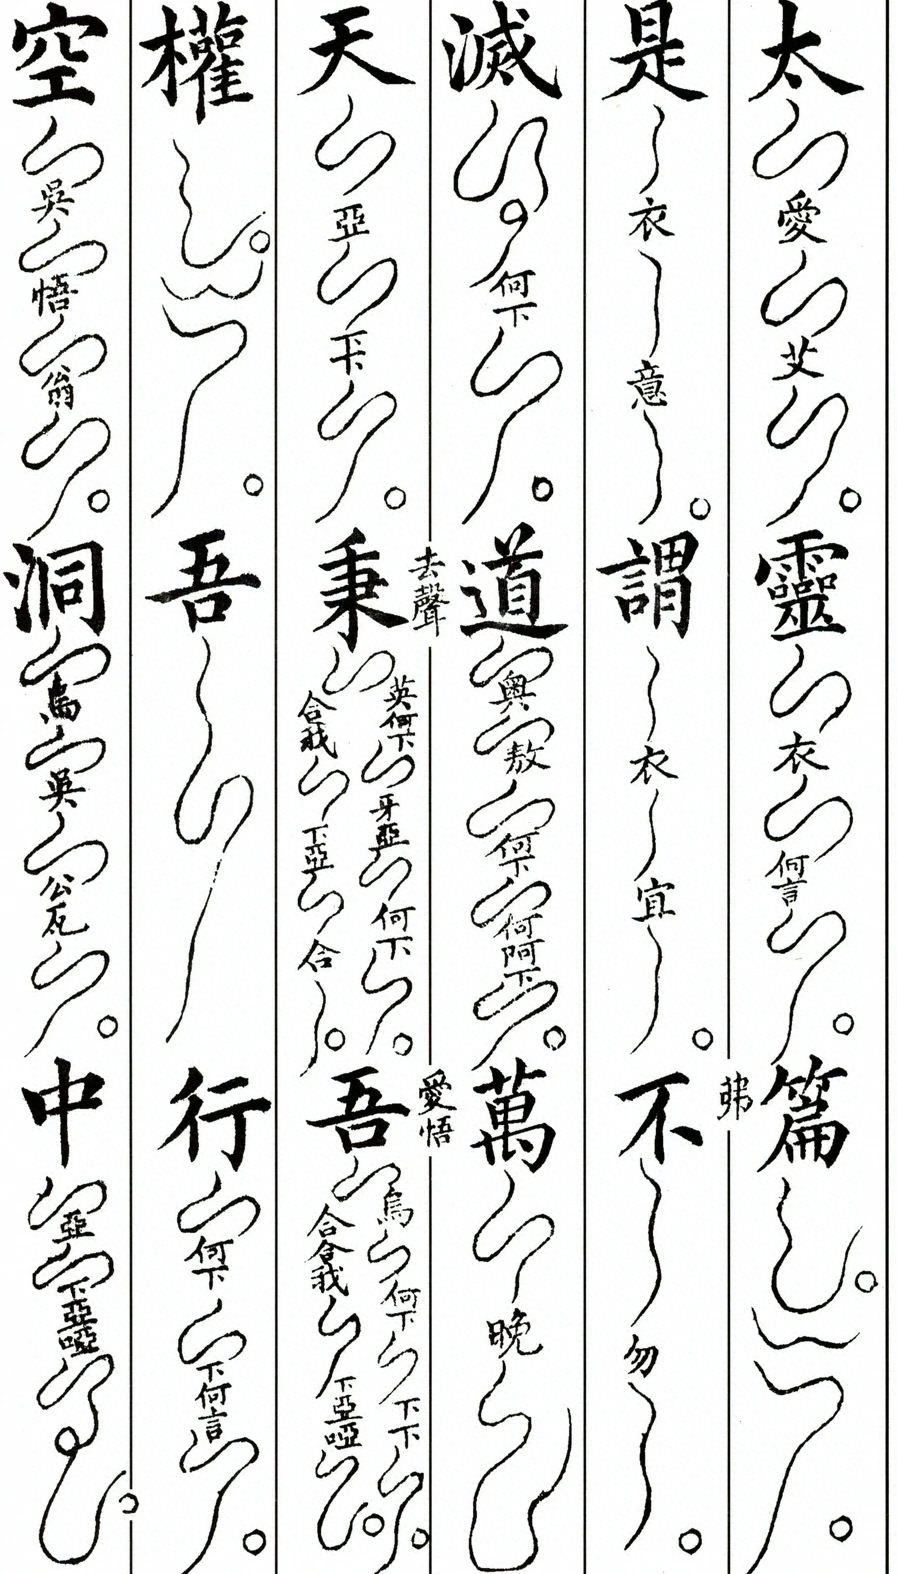 太愛艾靈衣何言篇
是衣意謂衣宜不勿
滅何下道奧敖何下何阿下萬晚
天亞下秉去聲英何下牙亞何下合我下亞合吾愛悟烏何下下下合合我下亞啞
權吾行何下下何言
空吳悟翁洞烏吳公瓦中亞下亞啞